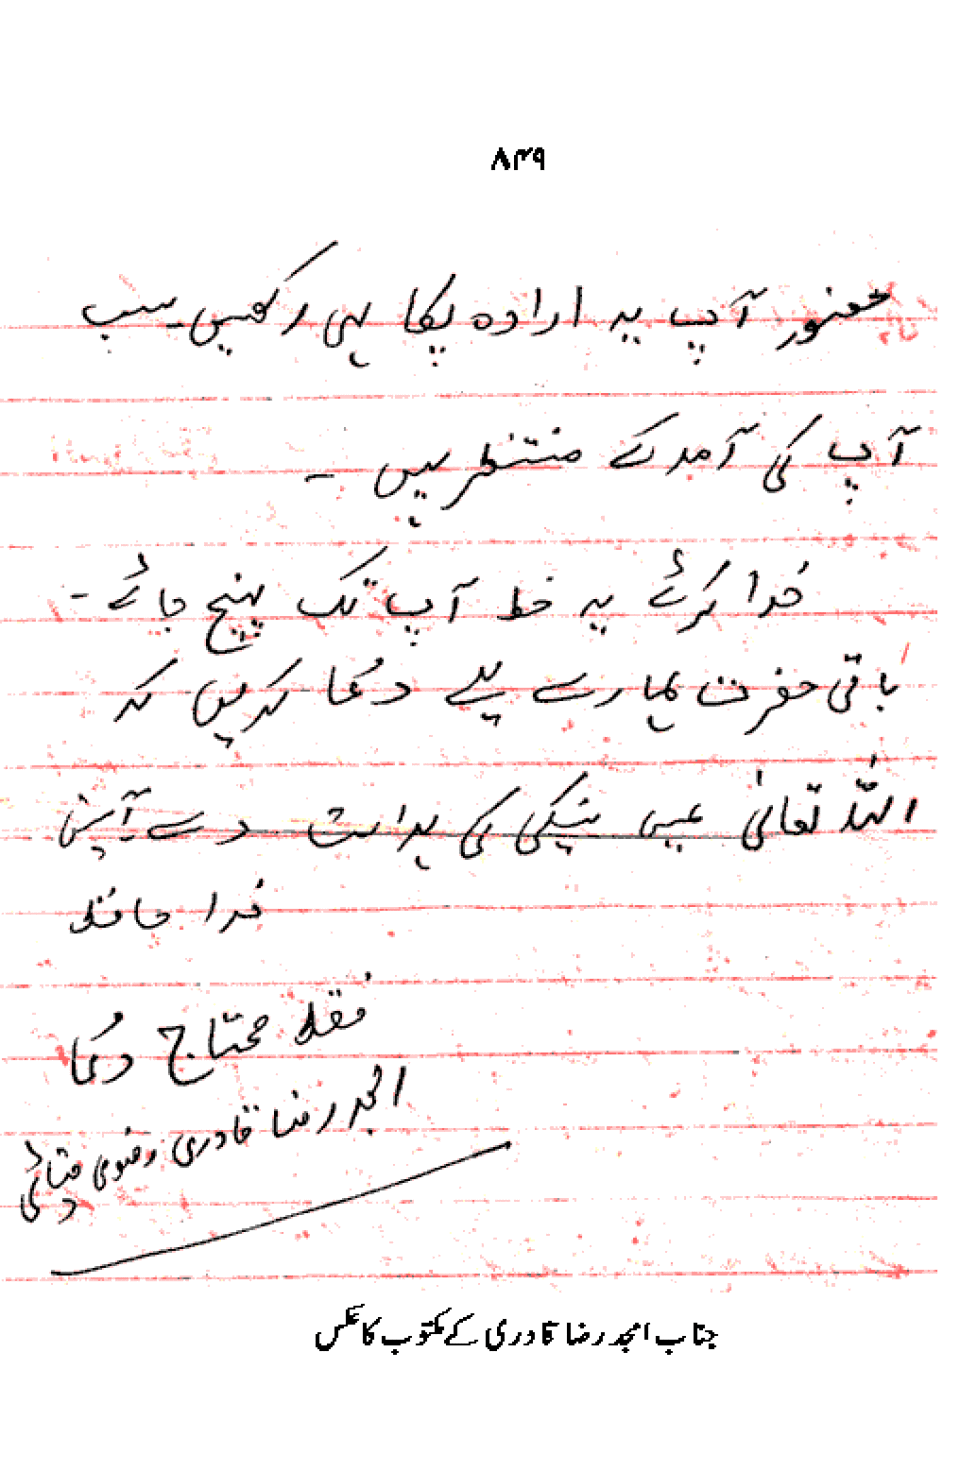 ۸۴۹
حضور آپ یہ ارادہ پکا ہی رکھیں۔ سب
آپ کی آمد کے منتظر ہیں ۔
خدا کرئے یہ خط آپ تک پہنچ جائے ۔
باقی حضرت ہمارے لیے دعا کریں کہ
اللہ تعالیٰ ہمیں نیکی کی ہدایت دے آمین
خدا حافظ
فقط محتاج دعا
امجد رضا قادری رضوی
جناب امجد رضا قادری کے مکتوب کا عکس